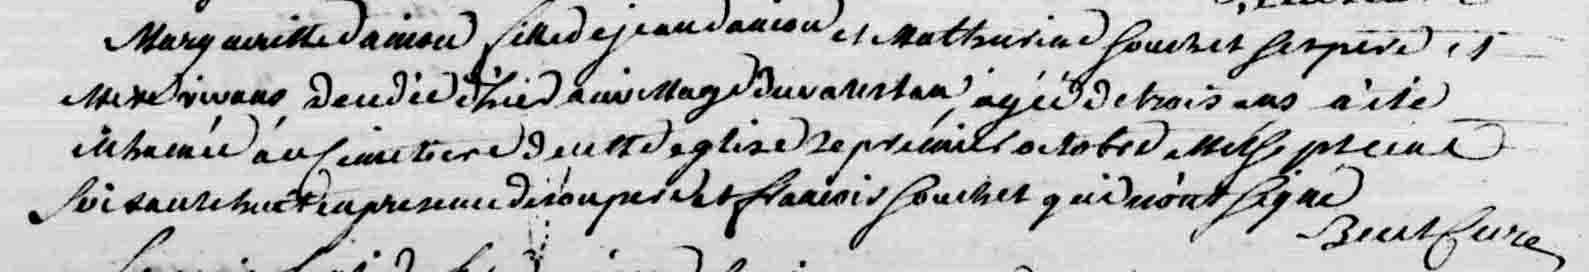 Margueritte daniou fille de jean daniou et Mathurine Souchet ses père et
Mere vivans decedée d'hier au village du agée de trois ans a été
inhumée au Cimetiere de cette eglise le prémier octobre Mil Sept cent
Soixante huit en presence de son pere et francois Souchet qui n'ont Signé
Curé